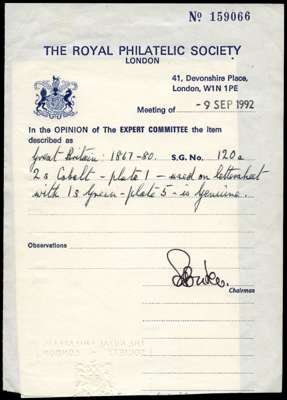 Nº 159066
THE ROYAL PHILATELIC SOCIETY
LONDON
41, Devonshire Place,
London, W1N 1PE
Meeting of - 9 SEP 1992
In the OPINION of The EXPERT COMMITTEE the item
described as
Great Britain: 1867-80. S.G. No. 120a
2s Cobalt - plate 1 - used on lettersheet
with 1s Green - plate 5 - is genuine.
Observations
Chairman
THE ROYAL PHILATELIC
SOCIETY LONDON